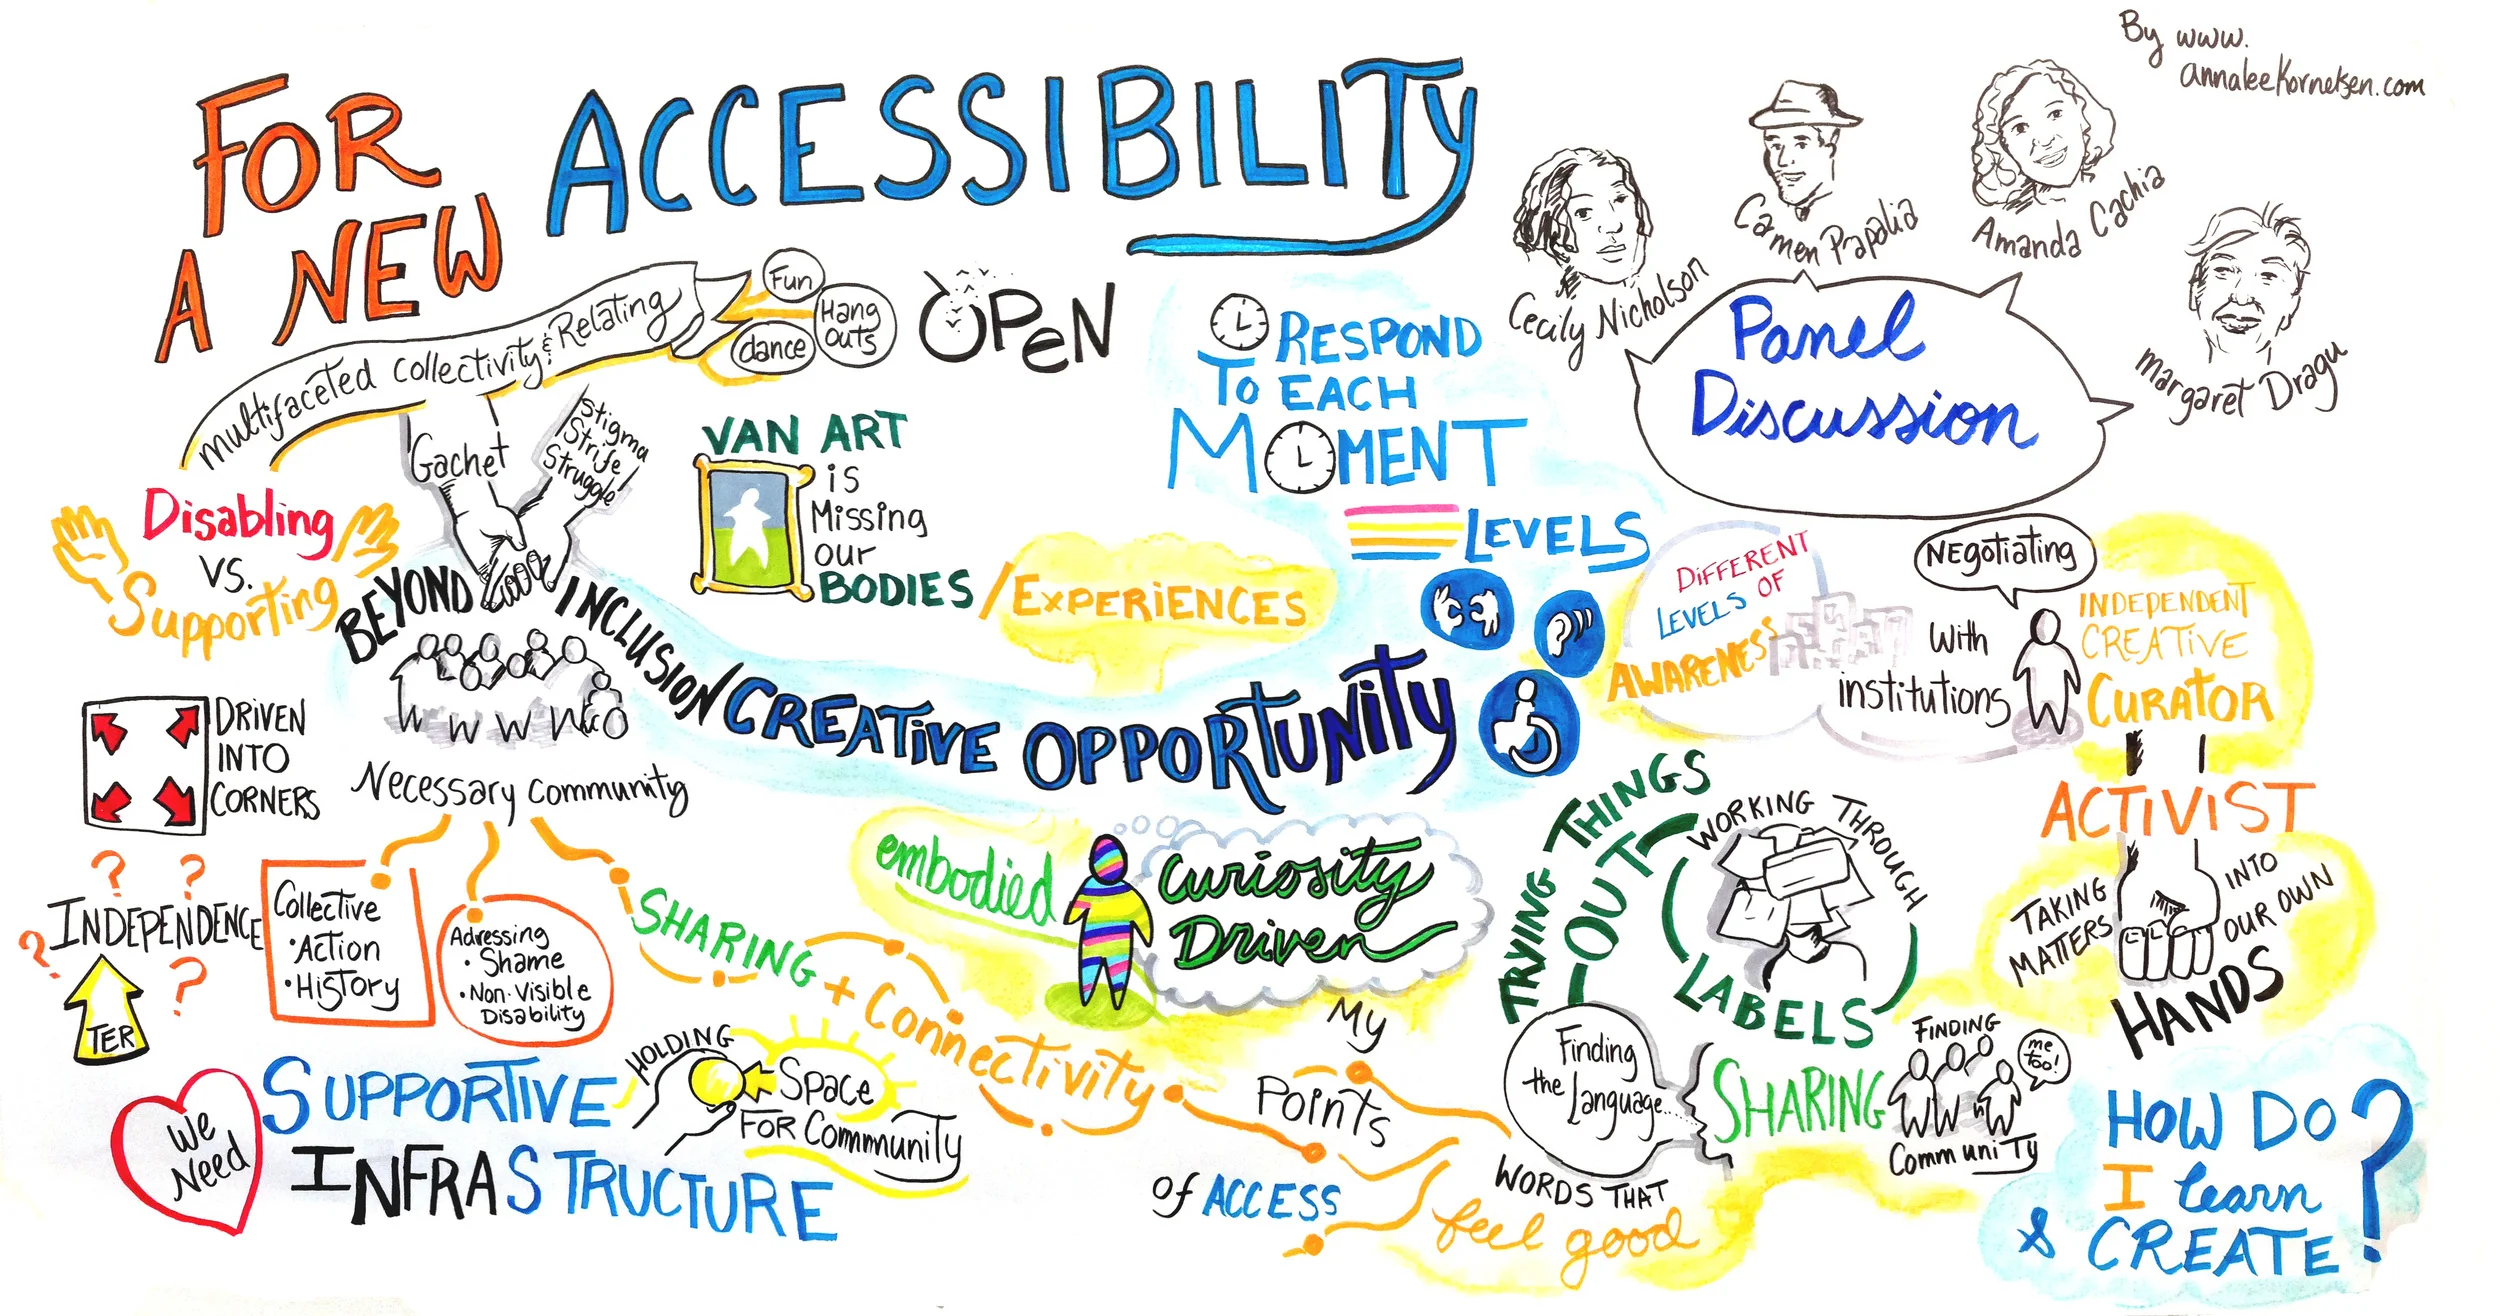 By www.
annaleeKornelsen.com
FOR
A NEW
ACCESSIBILITY
Cecily Nicholson
Carmen Papalia
Amanda Cachia
Margaret Dragu
Panel
Discussion
Multifaceted Collectivity & Relating
Fun
Hang
Outs
dance
OPEN
Gachet
Stigma
Strife
Struggle!
RESPOND
TO EACH
MOMENT
VAN ART
is
Missing
our
BODIES / EXPERIENCES
Disabling
VS.
Supporting
BEYOND INCLUSION / CREATIVE OPPORTUNITY
LEVELS
DIFFERENT
LEVELS OF
AWARENESS
Negotiating
with
institutions
INDEPENDENT
CREATIVE
CURATOR
ACTIVIST
TAKING
MATTERS
INTO
OUR OWN
HANDS
DRIVEN
INTO
CORNERS
Necessary community
? ?
INDEPENDENCE
? ?
TER
Collective
• Action
• History
Adressing
• Shame
• Non-Visible
Disability
SHARING
+ Connectivity
embodied
Curiosity
Driven
TRYING THINGS
OUT
WORKING THROUGH
LABELS
My
Points
of ACCESS
Finding
the Language....
WORDS THAT
feel good
SHARING
FINDING
me
too!
Community
We
Need
SUPPORTIVE
INFRASTRUCTURE
HOLDING
Space
FOR Community
HOW DO
I learn
& CREATE?